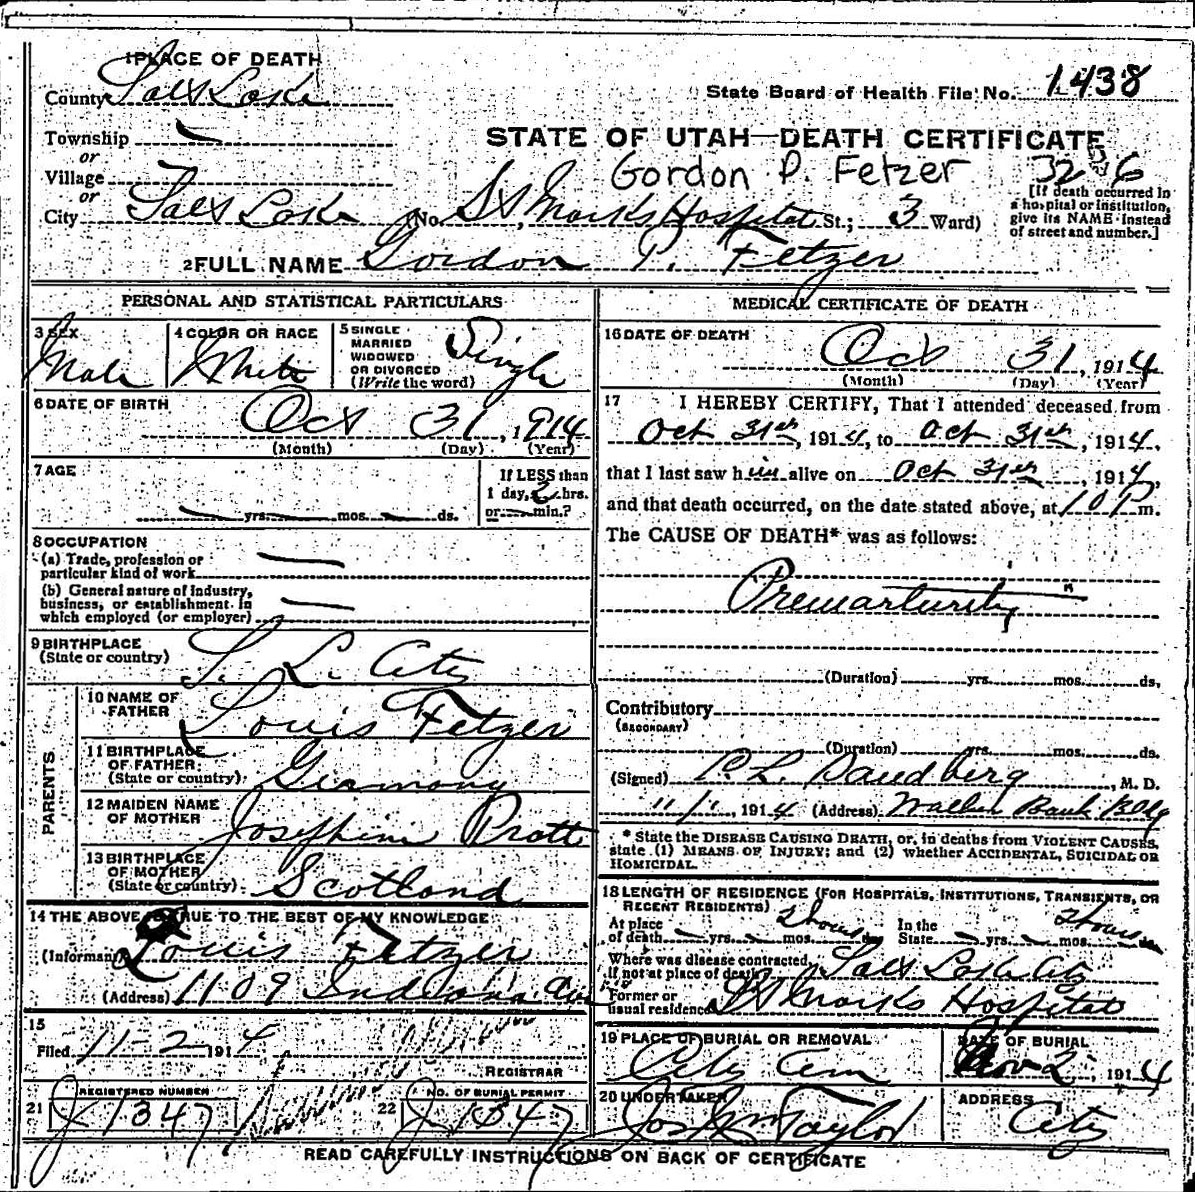 1 PLACE OF DEATH
County Salt Lake
State Board of Health File No. 1438
Township —
or
STATE OF UTAH—DEATH CERTIFICATE
Village
Gordon P. Fetzer
or
City Salt Lake (No. St Marks Hospital St.; 3 Ward)
[If death occurred in a hospital or institution, give its NAME instead of street and number.]
2 FULL NAME Gordon P. Fetzer
PERSONAL AND STATISTICAL PARTICULARS
3 SEX
Male
4 COLOR OR RACE
White
5 SINGLE
MARRIED
WIDOWED
OR DIVORCED
(Write the word)
Single
6 DATE OF BIRTH
Oct 31, 1914
(Month) (Day) (Year)
7 AGE
— yrs. — mos. — ds.
If LESS than
1 day, 2 hrs.
or — min.?
8 OCCUPATION
(a) Trade, profession or
particular kind of work —
(b) General nature of Industry,
business, or establishment in
which employed (or employer) —
9 BIRTHPLACE
(State or country)
S. L. City
PARENTS
10 NAME OF
FATHER
Louis Fetzer
11 BIRTHPLACE
OF FATHER
(State or country)
Germany
12 MAIDEN NAME
OF MOTHER
Josephine Pratt
13 BIRTHPLACE
OF MOTHER
(State or country)
Scotland
14 THE ABOVE IS TRUE TO THE BEST OF MY KNOWLEDGE
(Informant) Louis Fetzer
(Address) 1109 Indiana Ave
15
Filed 11-2 1914
REGISTRAR
REGISTERED NUMBER
21 J 1347
NO. OF BURIAL PERMIT
22 J 1347
MEDICAL CERTIFICATE OF DEATH
16 DATE OF DEATH
Oct 31, 1914
(Month) (Day) (Year)
17 I HEREBY CERTIFY, That I attended deceased from
Oct 31st, 1914, to Oct 31st, 1914,
that I last saw him alive on Oct 31st, 1914,
and that death occurred, on the date stated above, at 10 P m.
The CAUSE OF DEATH* was as follows:
Prematurity
(Duration) yrs. mos. ds.
Contributory
(SECONDARY)
(Duration) yrs. mos. ds.
(Signed) , M. D.
11/1, 1914 (Address) Walker Bank Bldg
* State the DISEASE CAUSING DEATH, or, in deaths from VIOLENT CAUSES,
state (1) MEANS OF INJURY; and (2) whether ACCIDENTAL, SUICIDAL OR
HOMICIDAL.
18 LENGTH OF RESIDENCE (FOR HOSPITALS, INSTITUTIONS, TRANSIENTS, OR
RECENT RESIDENTS)
At place
of death — yrs. — mos. 2 hours ds.
In the
State — yrs. — mos. 2 hours ds.
Where was disease contracted,
If not at place of death? Salt Lake City
Former or
usual residence St Marks Hospital
19 PLACE OF BURIAL OR REMOVAL
City Cem
DATE OF BURIAL
Nov 2, 1914
20 UNDERTAKER
Jos Wm Taylor
ADDRESS
City
READ CAREFULLY INSTRUCTIONS ON BACK OF CERTIFICATE